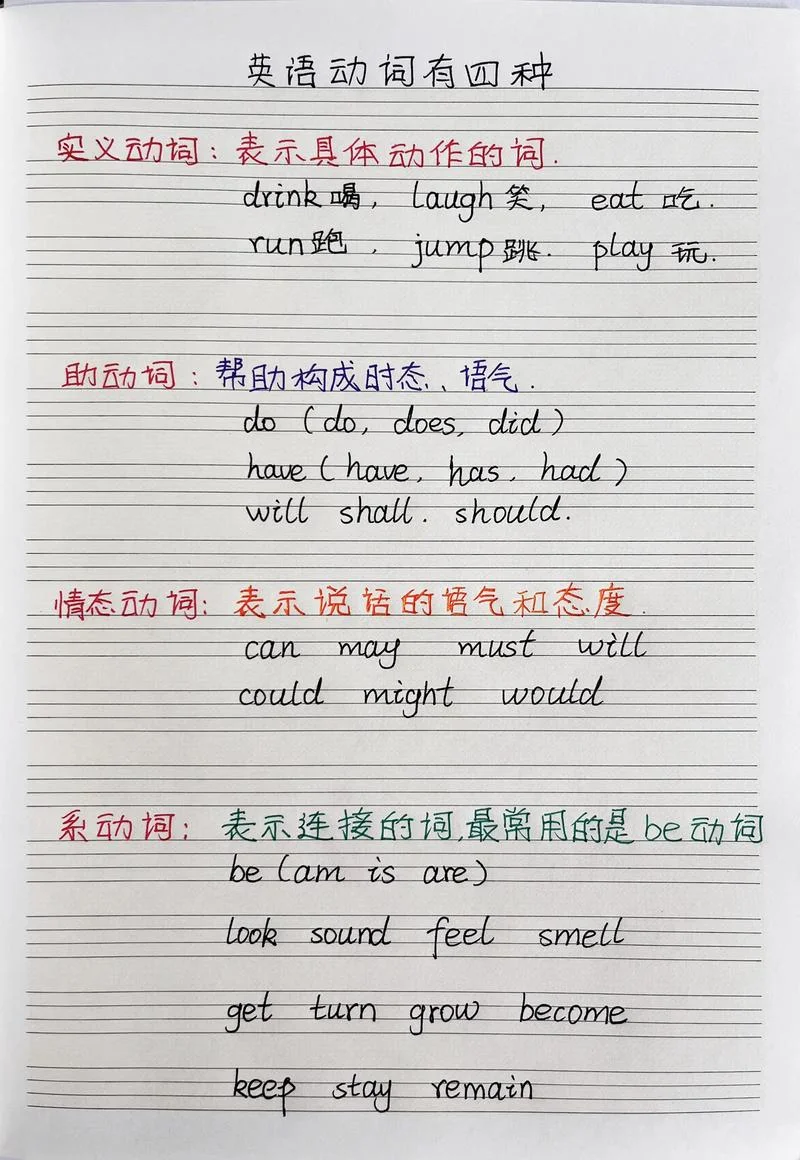 英语动词有四种
实义动词：表示具体动作的词.
drink喝， laugh笑， eat 吃.
run跑 ， jump跳. play 玩.
助动词：帮助构成时态、语气.
do (do, does, did)
have (have, has, had)
will shall. should.
情态动词：表示说话的语气和态度.
can may must will
could might would
系动词；表示连接的词,最常用的是be动词
be (am is are)
look sound feel smell
get turn grow become
keep stay remain